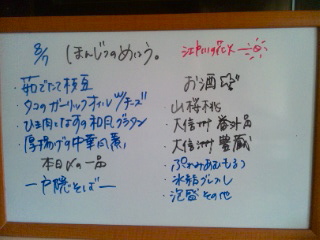 8/7 ほんじつのめにう。
・茹でたて枝豆
・タコのガーリックオイルW/チーズ
・ひき肉となすの和風グラタン
・厚揚げの中華風煮
本日〆の一品
ー戸隠そばー
お酒
・山桜桃
・大信州 番外品
・大信州 豊蔵
・ぷれみあむもるつ
・氷結グレフル
・泡盛 その他